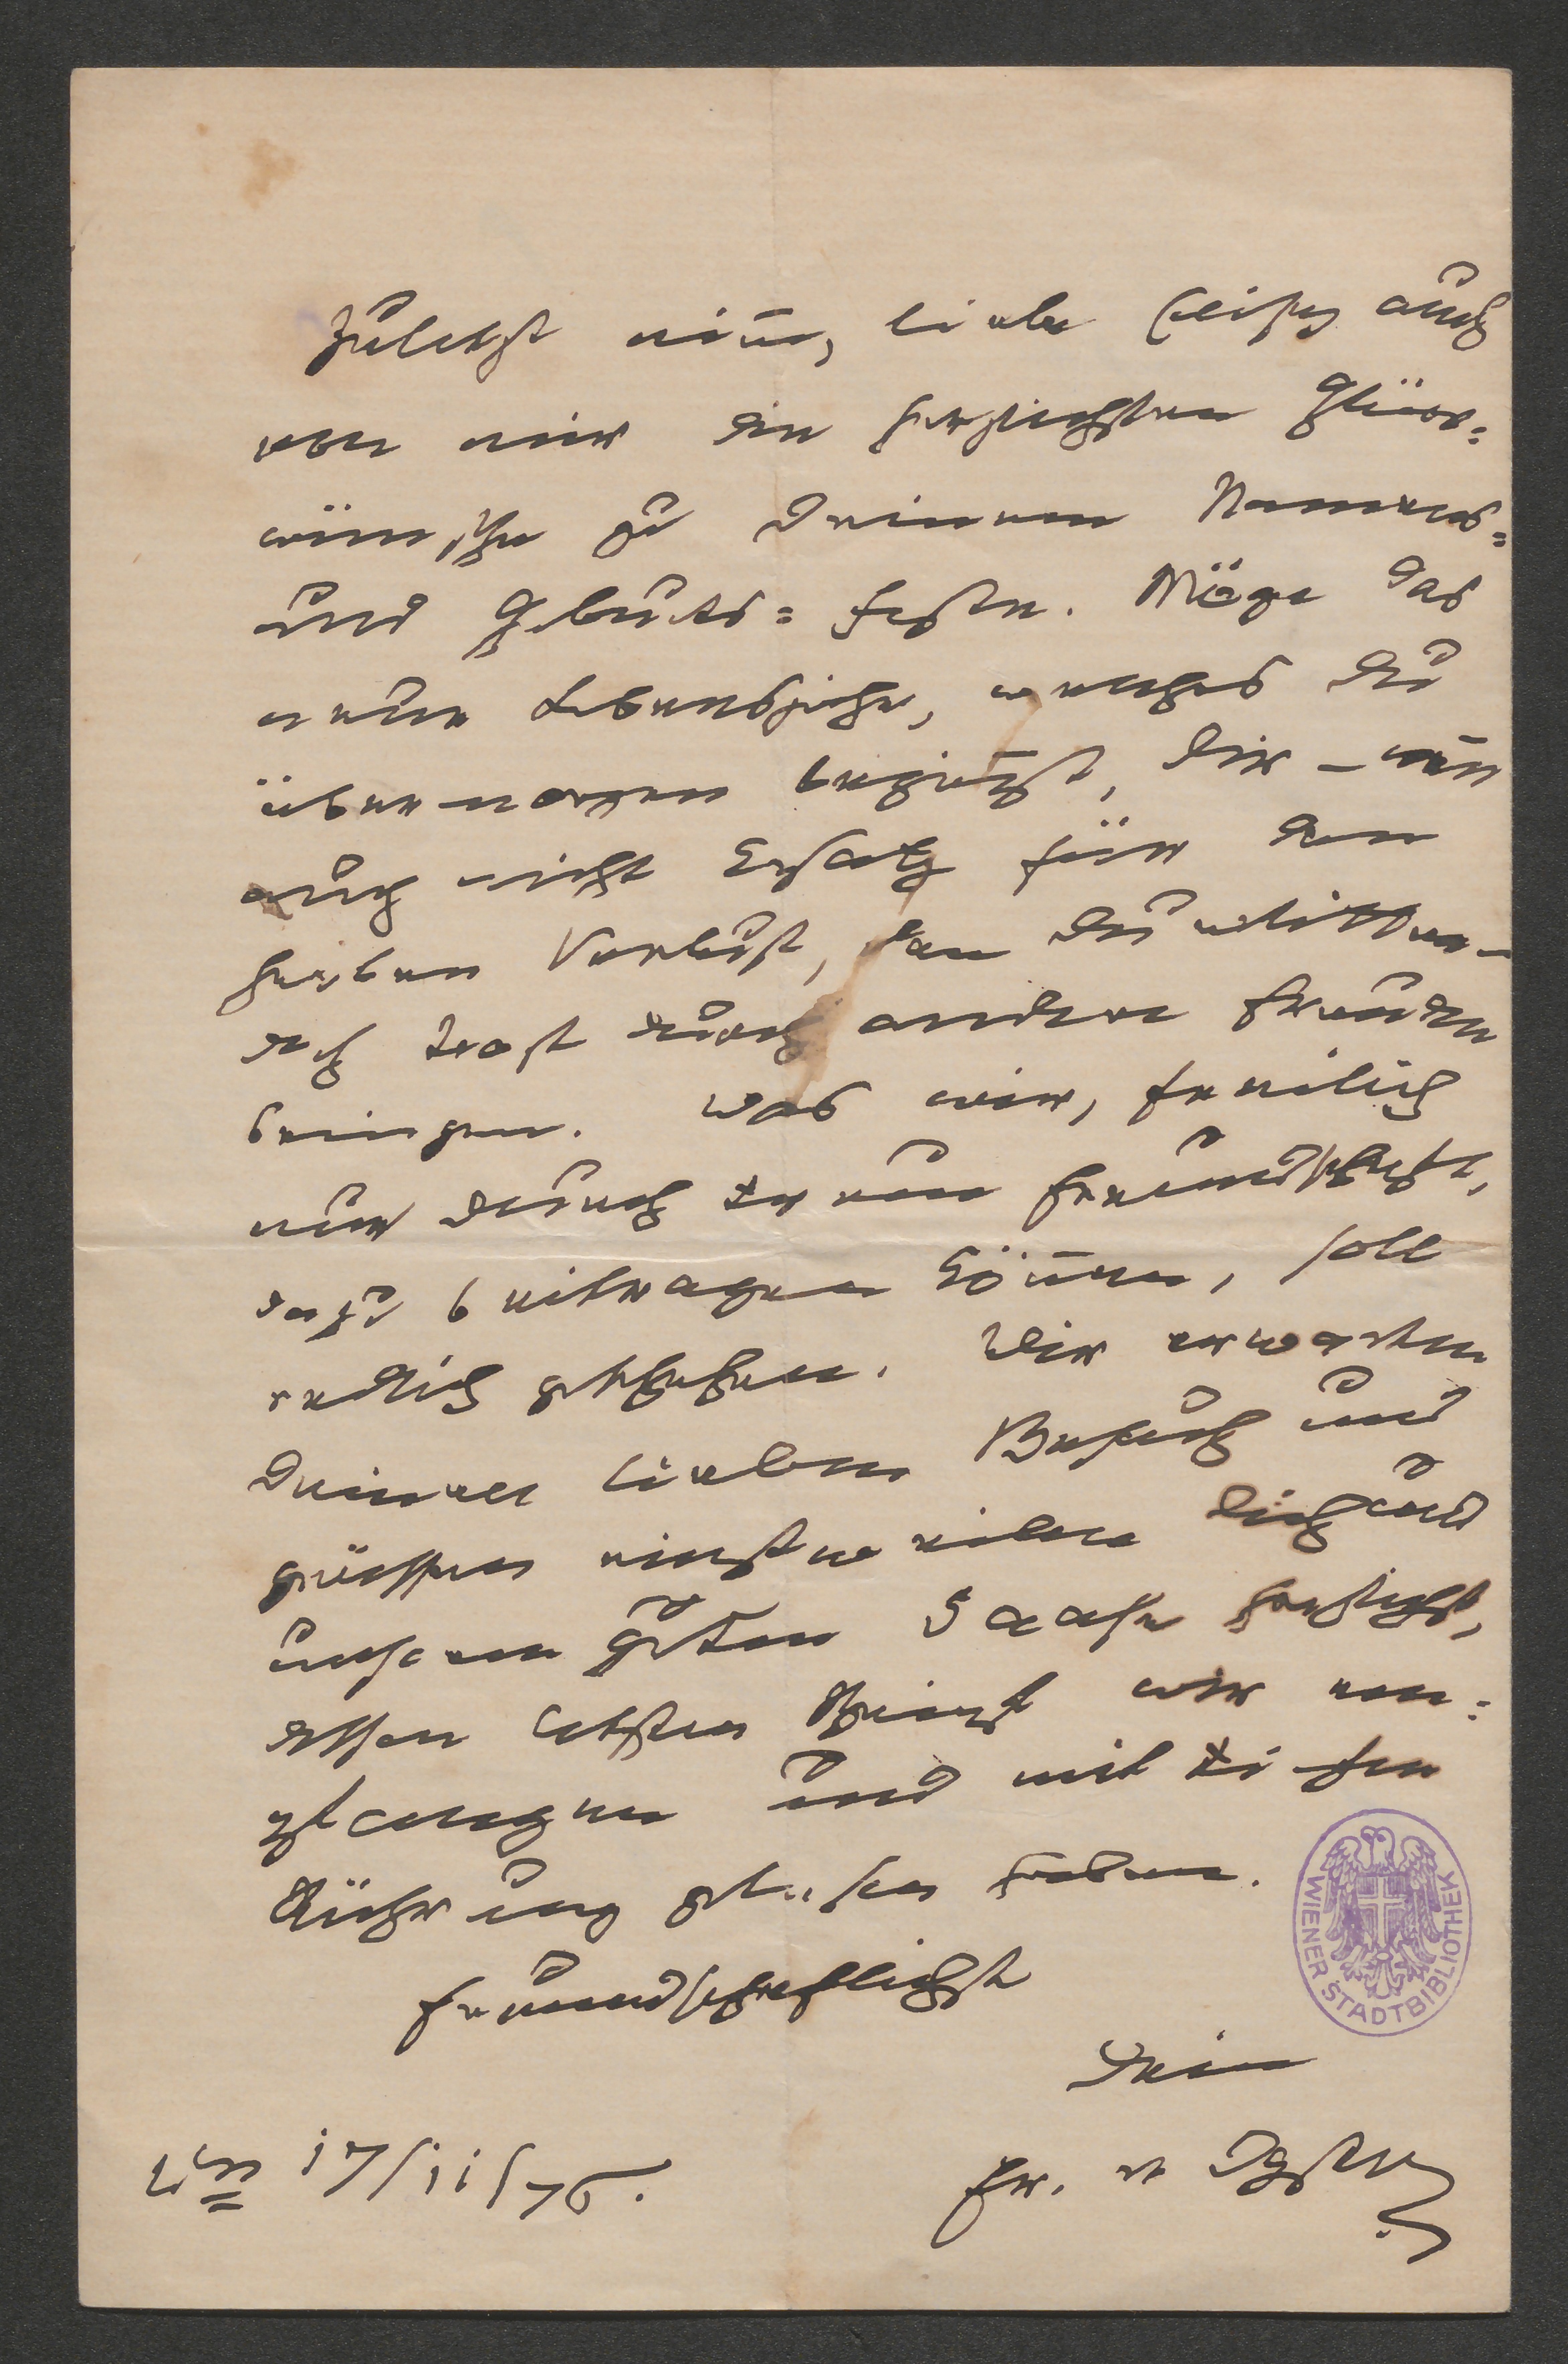 Zuletzt nim̅, liebe Elise, auch
von mir die herzlichsten Glück=
wünsche zu Deinem Namens=
und Geburts=feste. Möge das
neue Lebensjahr, welches Du
übermorgen begin̅st, Dir – wen̅
auch nicht Ersatz für den
herben Verlust, den Du erlitten –
doch Trost durch andere Freuden
bringen. Was wir, freilich
nur durch treue Freundschaft,
dazu beitragen kön̅en, soll
redlich geschehen. Wir erwarten
Deinen lieben Besuch und
grüssen einstweilen Dich und
unseren guten Saar herzlichst,
dessen letztes wir em=
pfangen und mit tiefer
Rührung gelesen haben.
Freundschaftlichst
Dein
17/11/76.
WIENER STADTBIBLIOTHEK